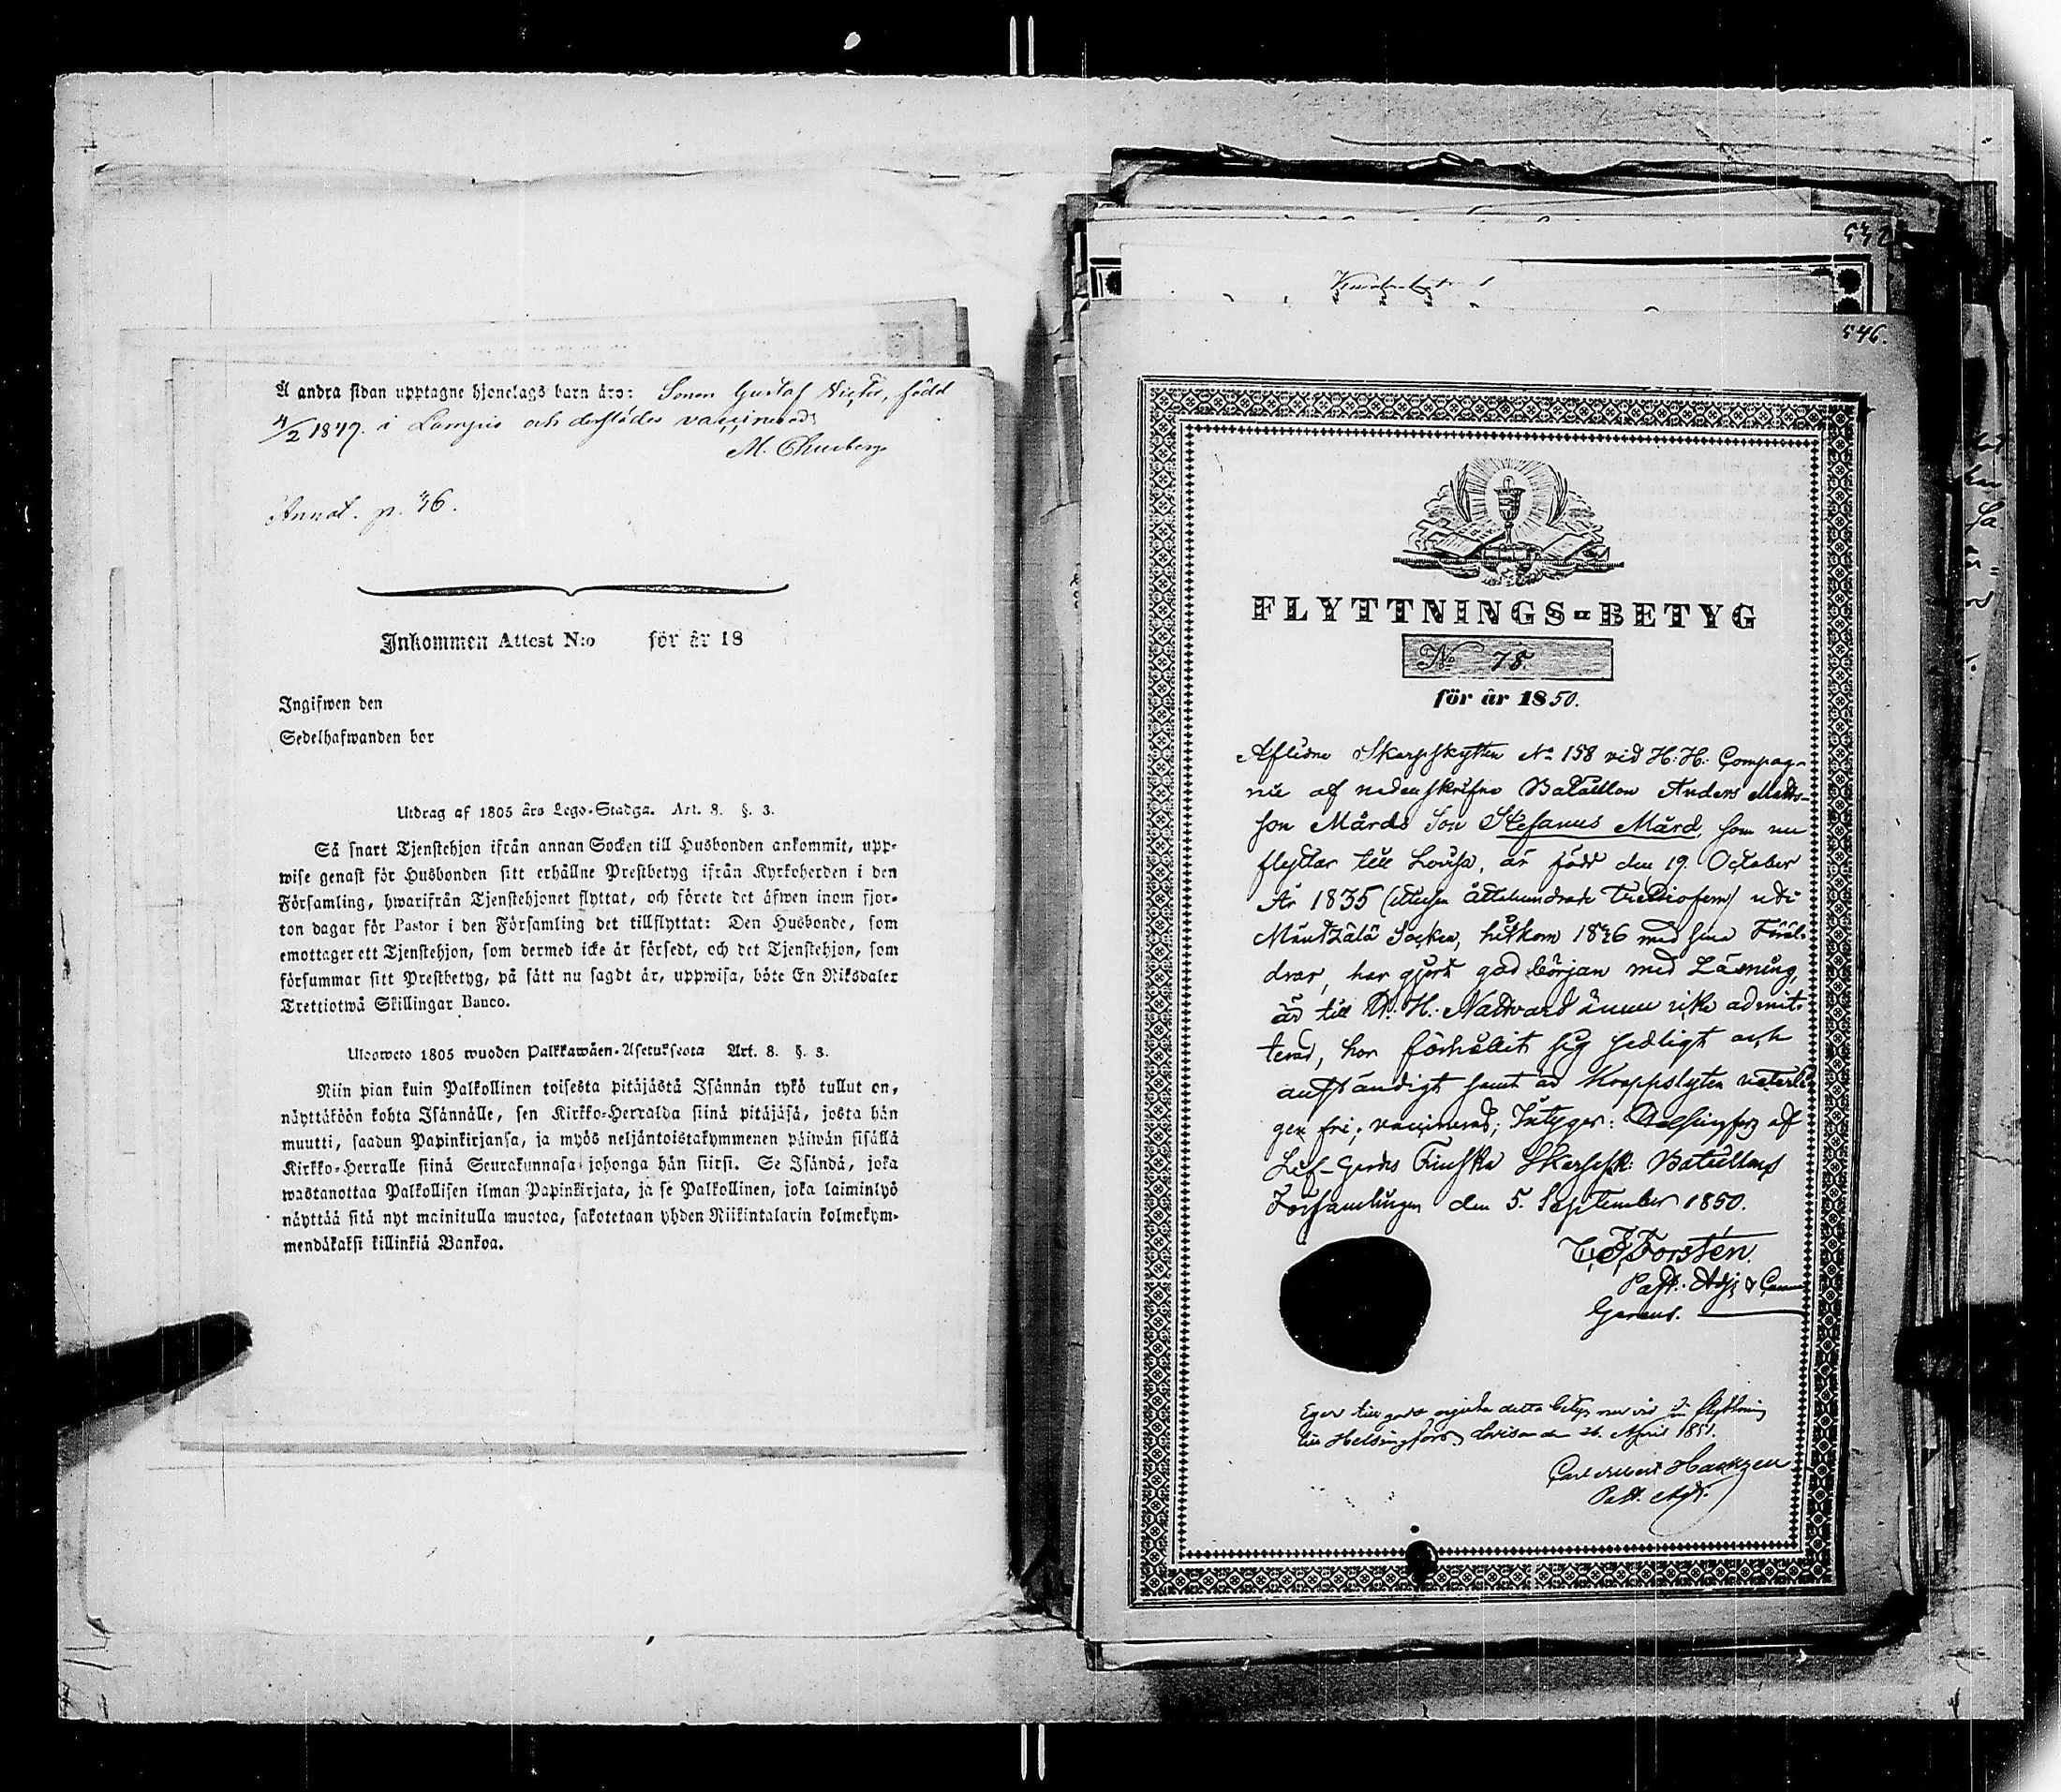 Å andra sidan upptagne hjonelags barn äro: Sonen Gustaf Victor, född
4/2 1847. i Lampis och derstädes vaccinerad.
M. Churberg
Annot. p. 46.
Inkommen Attest N:o för år 18
Ingifwen den
Sedelhafwanden bor
Utdrag af 1805 års Lego-Stadga. Art. 8. §. 3.
Så snart Tjenstehjon ifrån annan Socken till Husbonden ankommit, upp-
wise genast för Husbonden sitt erhållne Prestbetyg ifrån Kyrkoherden i den
Församling, hwarifrån Tjenstehjonet flyttat, och förete det äfwen inom fjor-
ton dagar för Pastor i den Församling det tillflyttat: Den Husbonde, som
emottager ett Tjenstehjon, som dermed icke är försedt, och det Tjenstehjon, som
försummar sitt Prestbetyg, på sätt nu sagdt är, uppwisa, böte En Riksdaler
Trettiotwå Skillingar Banco.
Ulosweto 1805 wuoden Palkkawäen-Asetuksesta Art. 8. §. 3.
Niin pian kuin Palkollinen toisesta pitäjästä Isännän tykö tullut on,
näyttäköön kohta Isännälle, sen Kirkko-Herralda siinä pitäjäsä, josta hän
muutti, saadun Papinkirjansa, ja myös neljäntoistakymmenen päiwän sisällä
Kirkko-Herralle siinä Seurakunnasa johonga hän siirsi. Se Isändä, joka
wastanottaa Palkollisen ilman Papinkirjata, ja se Palkollinen, joka laiminlyö
näyttää sitä nyt mainitulla muotoa, sakotetaan yhden Riikintalarin kolmekym-
mendäkaksi killinkiä Bankoa.
542
546.
FLYTTNINGS-BETYG
No 78.
för år 1850.
Aflidne Skarpskytten No 158 vid H: H: Compag-
nie af nedanskrifne Bataillon Anders Matts-
son Mårds Son Stefanus Mård, som nu
flyttar till Lovisa, är född den 19. October
År 1835 (ettusen åttahundrade trettiofem) uti
Mäntzälä Socken, hitkom 1846 med sina Föräl-
drar, har gjort god början med Läsning,
är till D. H. Nattvard ännu icke admit-
terad, har förhållit sig sedligt och
anständigt samt är Koppslyten naturli-
gen fri; vaccinerad; Intygar: Helsingfors af
Lif-Gardes Finska Skarpsk: Bataillons
Församlingen den 5. September 1850.
C. F. Forsten.
Past. Adj.
Gerens.
Eger till godo njuta detta betyg nu vid sin flyttning
till Helsingfors, Lovisa den 26. April 1851.
Carl Albert Hackzell
Past. Adj.